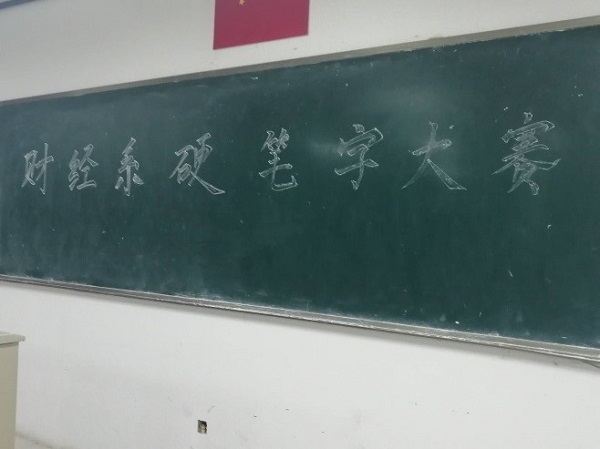 财经系硬笔字大赛